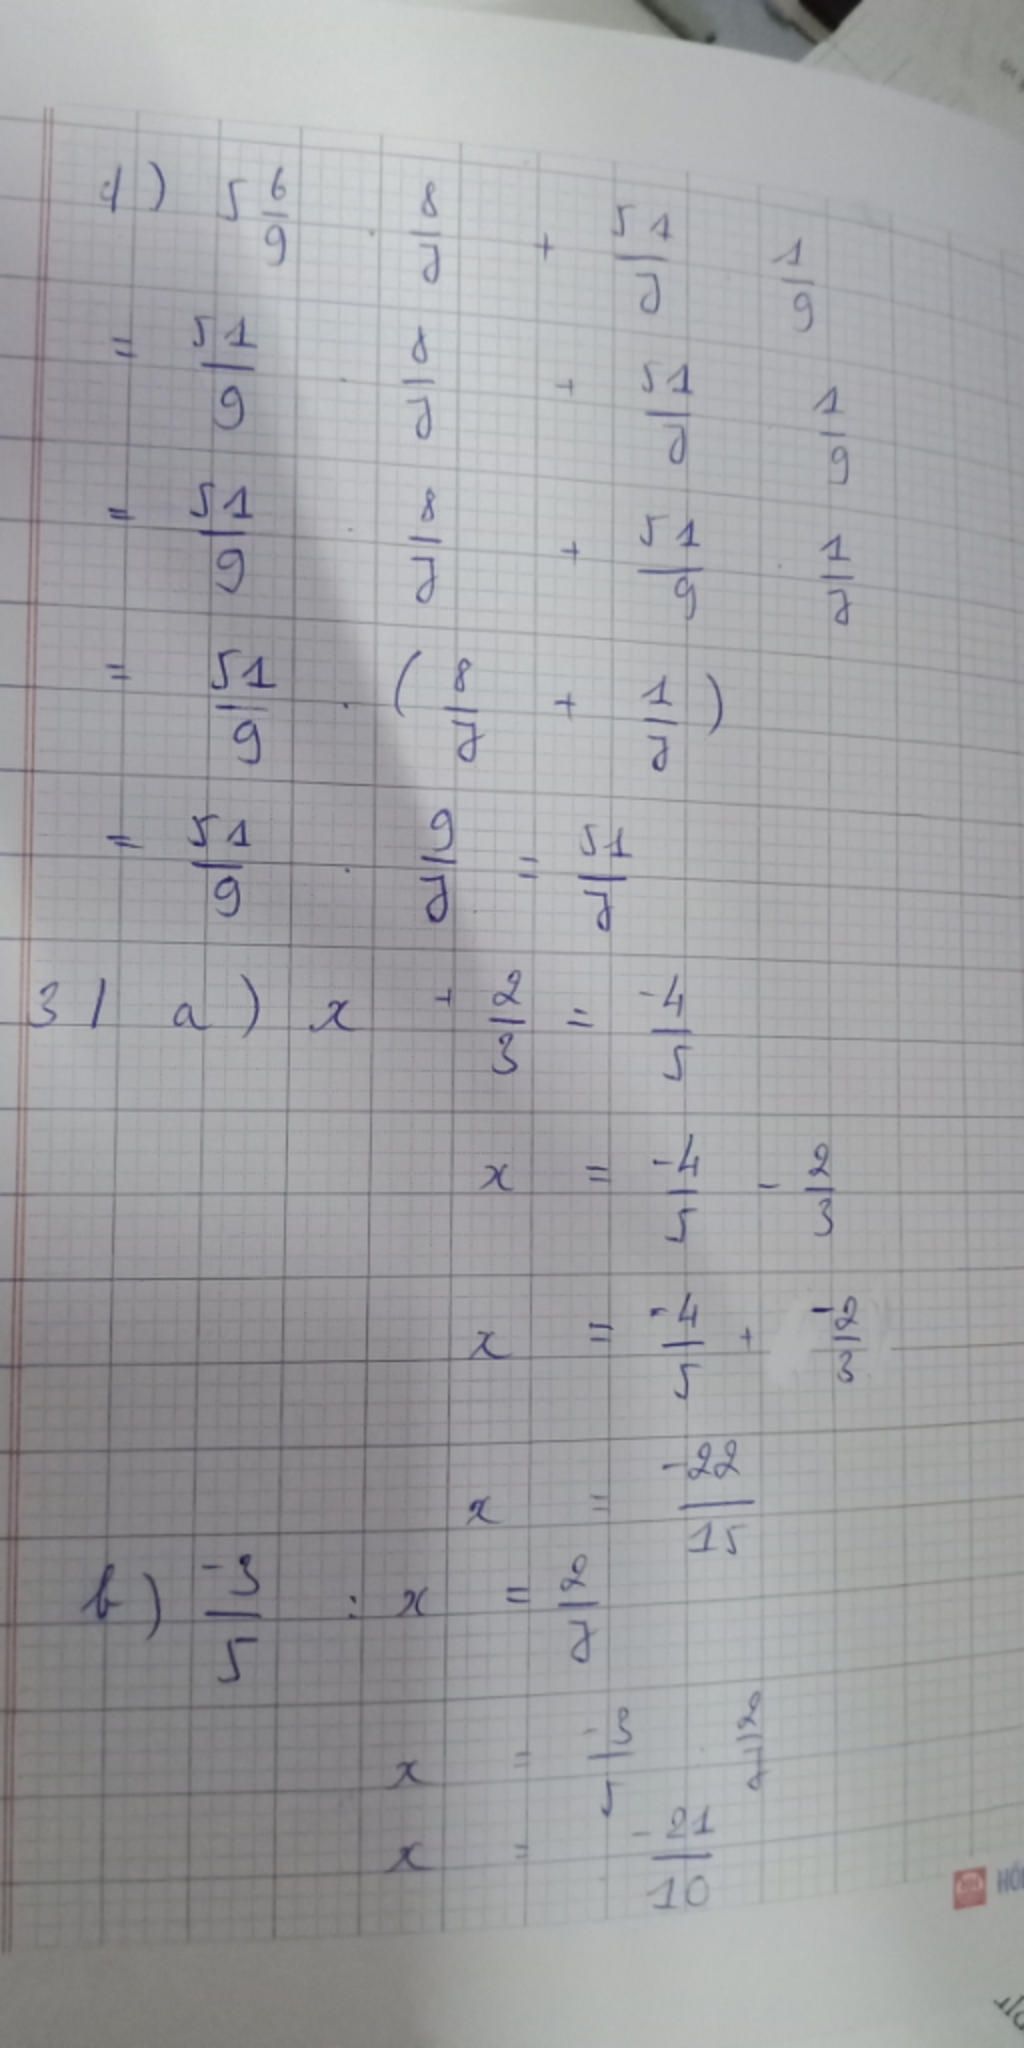 d) 5 6/9 . 8/7 + 51/7 1/9
= 51/9 . 8/7 + 51/7 1/9
= 51/9 . 8/7 + 51/9 . 1/7
= 51/9 . ( 8/7 + 1/7 )
= 51/9 . 9/7 = 51/7
3/ a) x + 2/3 = -4/5
x = -4/5 - 2/3
x = -4/5 + -2/3
x = -22/15
b) -3/5 : x = 2/7
x = -3/5 . 2/7
x = -21/10